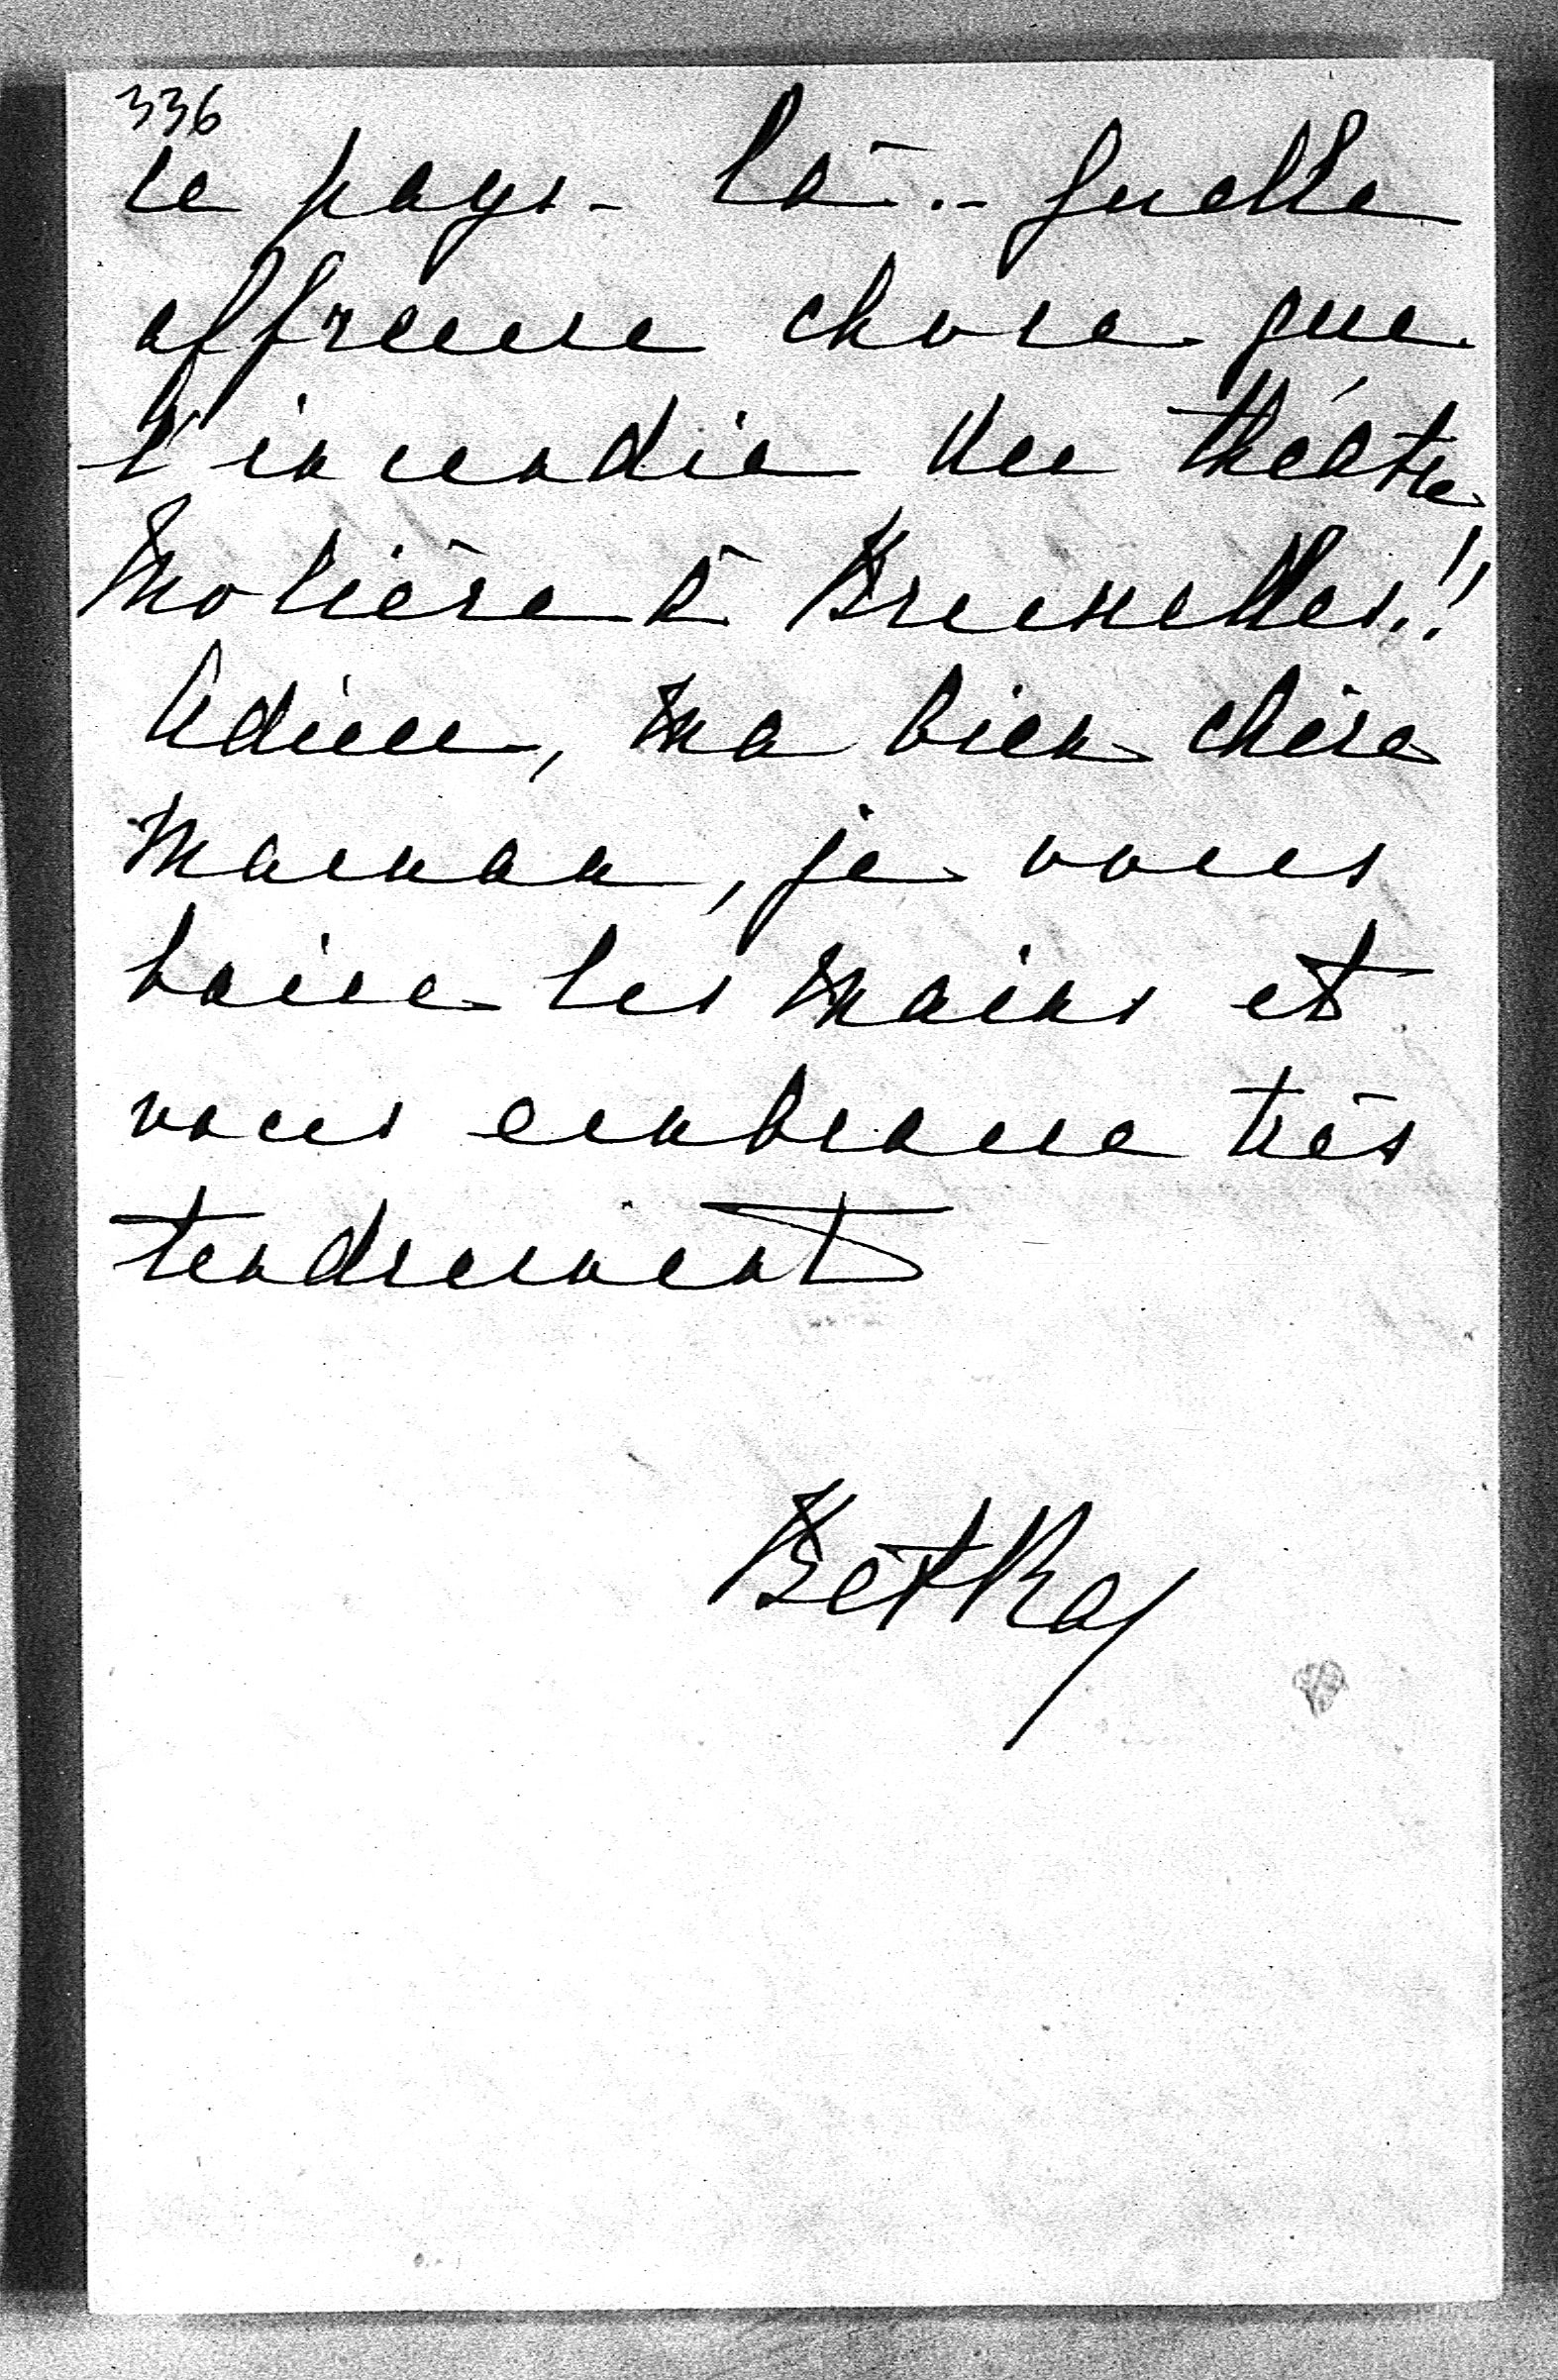 336
ce pays-là.- Quelle
affreuse chose que
l'incendie du théâtre
Molière à Bruxelles!!
Adieu, ma bien chère
Maman, je vous
baise les mains et
vous embrasse très
tendrement